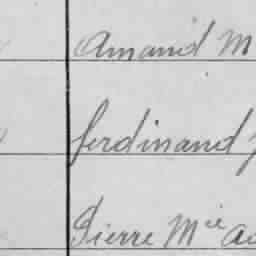 Amand M
ferdinand
Pierre M^ie